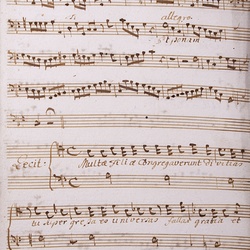 allegro
Recit:
Multæ filiæ congregaverunt divitias
tu super gressa es universas fallax gratia et